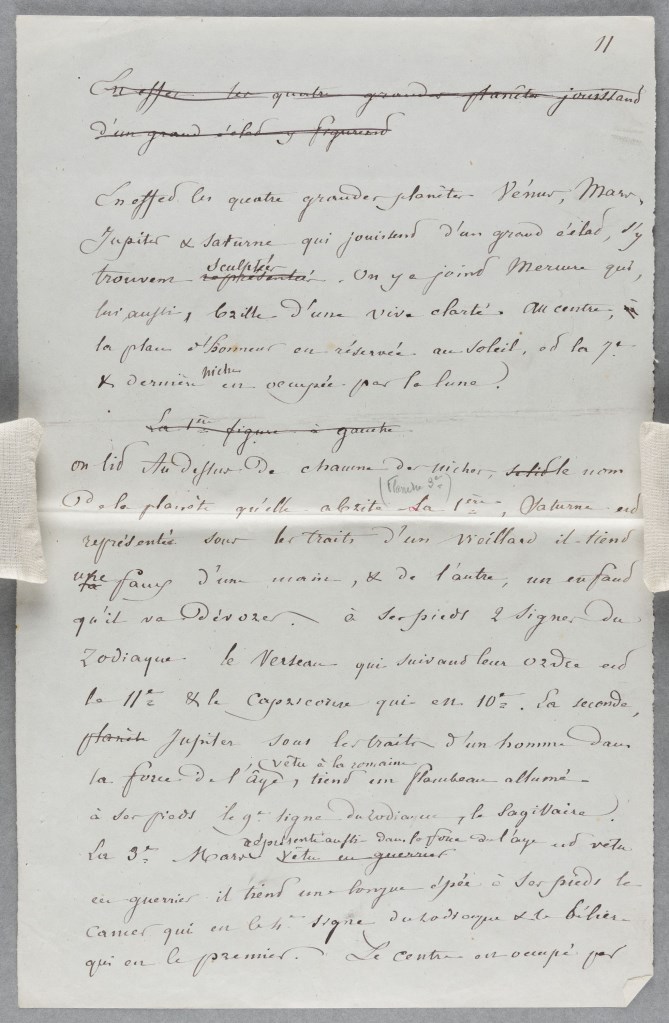 11
En effet les quatre grandes planètes jouissant
d'un grand éclat y figurent
En effet les quatre grandes planètes Vénus, Mars,
Jupiter & Saturne qui jouissent d'un grand éclat, s'y
sculptés
trouvent représentés. On y a joint Mercure qui,
lui aussi, brille d'une vive clarté. Au centre, à
la place d'honneur est réservée au soleil, et la 7e
niche
& dernière est occupée par la lune.
La 1ère figure à gauche
on lit Au dessus de chacune des niches, le nom
(Planche 3e)
De la planète qu'elle abrite. La 1ère, Saturne est
représentée sous les traits d'un vieillard il tient
une faux d'une main, & de l'autre, un enfant
qu'il va dévorer. à ses pieds 2 signes du
Zodiaque le Verseau qui suivant leur ordre est
le 11e & le Capricorne qui est 10e. La seconde,
planète Jupiter sous les traits d'un homme dans
vêtu à la romaine
la force de l'âge, tient un flambeau allumé
à ses pieds le 9e signe du zodiaque, le Sagittaire.
représenté aussi dans la force de l'age est vêtu
La 3e Mars vêtu en guerrier
en guerrier il tient une longue épée à ses pieds le
cancer qui est le 4e signe du zodiaque & le bélier
qui est le premier. Le centre est occupé par